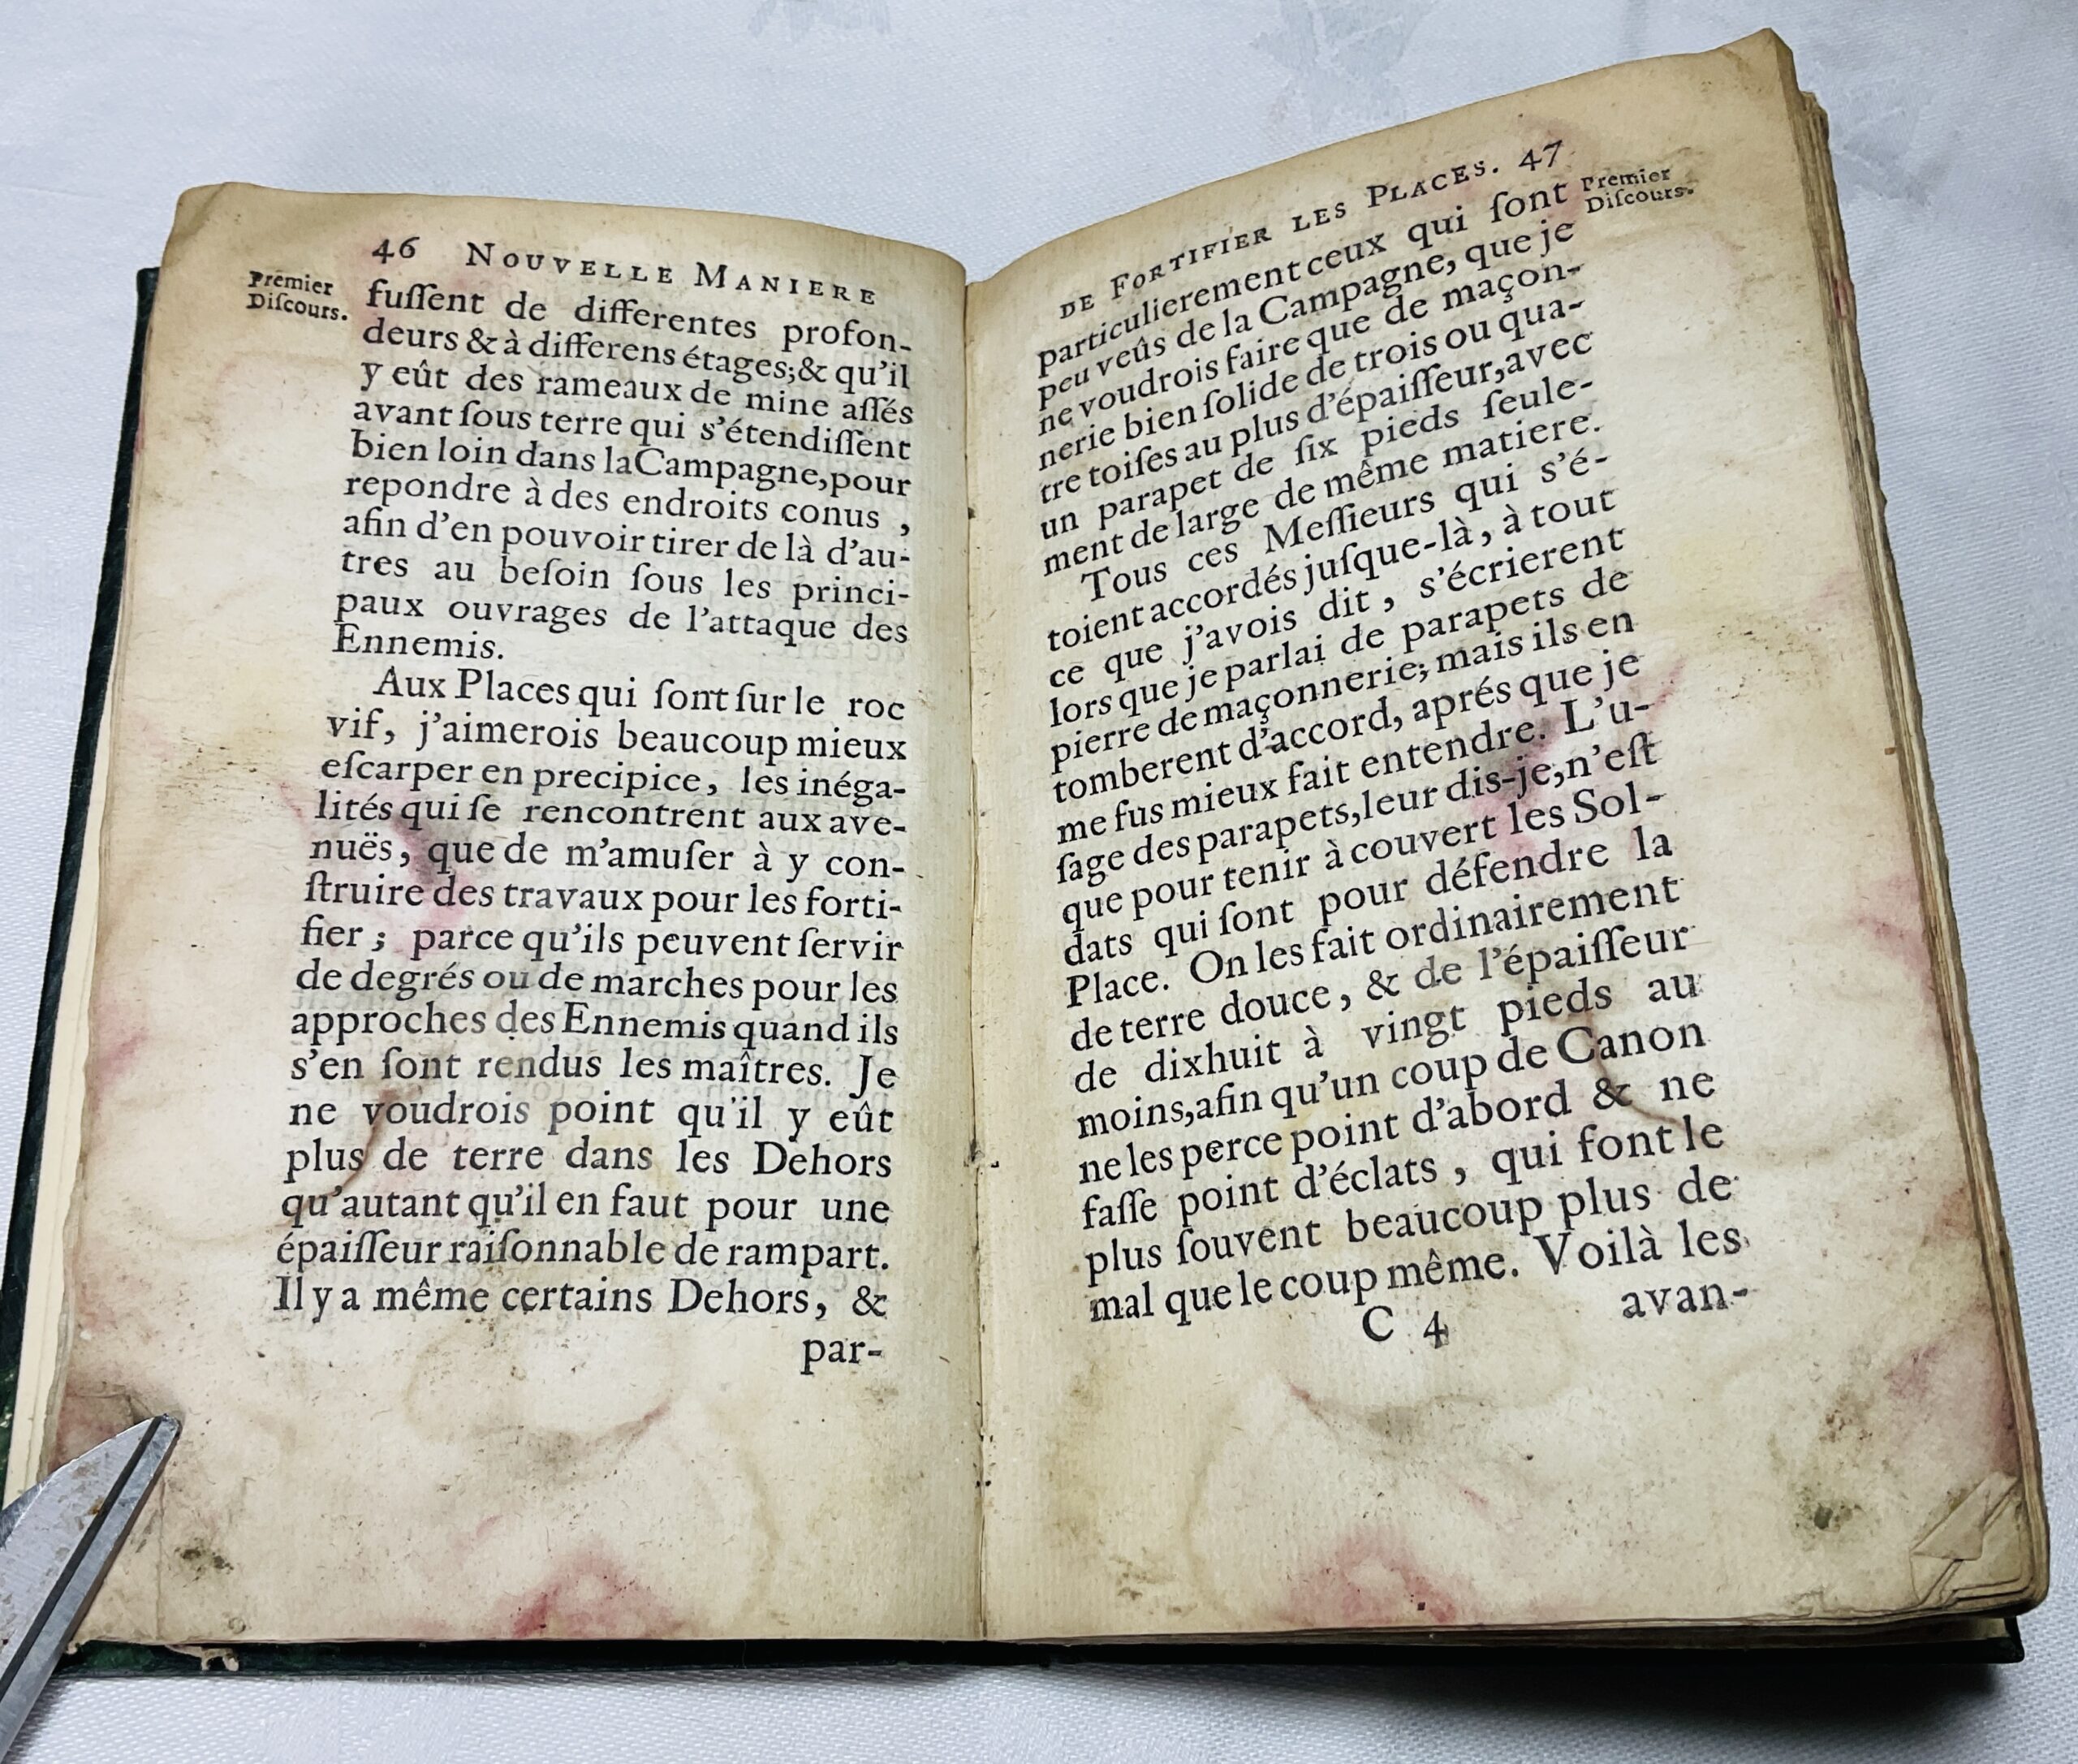 46 NOUVELLE MANIERE
Premier
Diſcours.
fuſſent de differentes profon-
deurs & à differens étages;& qu'il
y eût des rameaux de mine aſſés
avant ſous terre qui s'étendiſſent
bien loin dans laCampagne,pour
repondre à des endroits conus ,
afin d'en pouvoir tirer de là d'au-
tres au beſoin ſous les princi-
paux ouvrages de l'attaque des
Ennemis.
Aux Places qui ſont ſur le roc
vif, j'aimerois beaucoup mieux
eſcarper en precipice, les inéga-
lités qui ſe rencontrent aux ave-
nuës, que de m'amuſer à y con-
ſtruire des travaux pour les forti-
fier ; parce qu'ils peuvent ſervir
de degrés ou de marches pour les
approches des Ennemis quand ils
s'en ſont rendus les maîtres. Je
ne voudrois point qu'il y eût
plus de terre dans les Dehors
qu'autant qu'il en faut pour une
épaiſſeur raiſonnable de rampart.
Il y a même certains Dehors, &
par-
DE FORTIFIER LES PLACES. 47
Premier
Diſcours.
particulierement ceux qui ſont
peu veûs de la Campagne, que je
ne voudrois faire que de maçon-
nerie bien ſolide de trois ou qua-
tre toiſes au plus d'épaiſſeur,avec
un parapet de ſix pieds ſeule-
ment de large de même matiere.
Tous ces Meſſieurs qui s'é-
toient accordés juſque-là, à tout
ce que j'avois dit , s'écrierent
lors que je parlai de parapets de
pierre de maçonnerie; mais ils en
tomberent d'accord, aprés que je
me fus mieux fait entendre. L'u-
ſage des parapets,leur dis-je,n'eſt
que pour tenir à couvert les Sol-
dats qui ſont pour défendre la
Place. On les fait ordinairement
de terre douce, & de l'épaiſſeur
de dixhuit à vingt pieds au
moins,afin qu'un coup de Canon
ne les perce point d'abord & ne
faſſe point d'éclats , qui font le
plus ſouvent beaucoup plus de
mal que le coup même. Voilà les
C 4 avan-